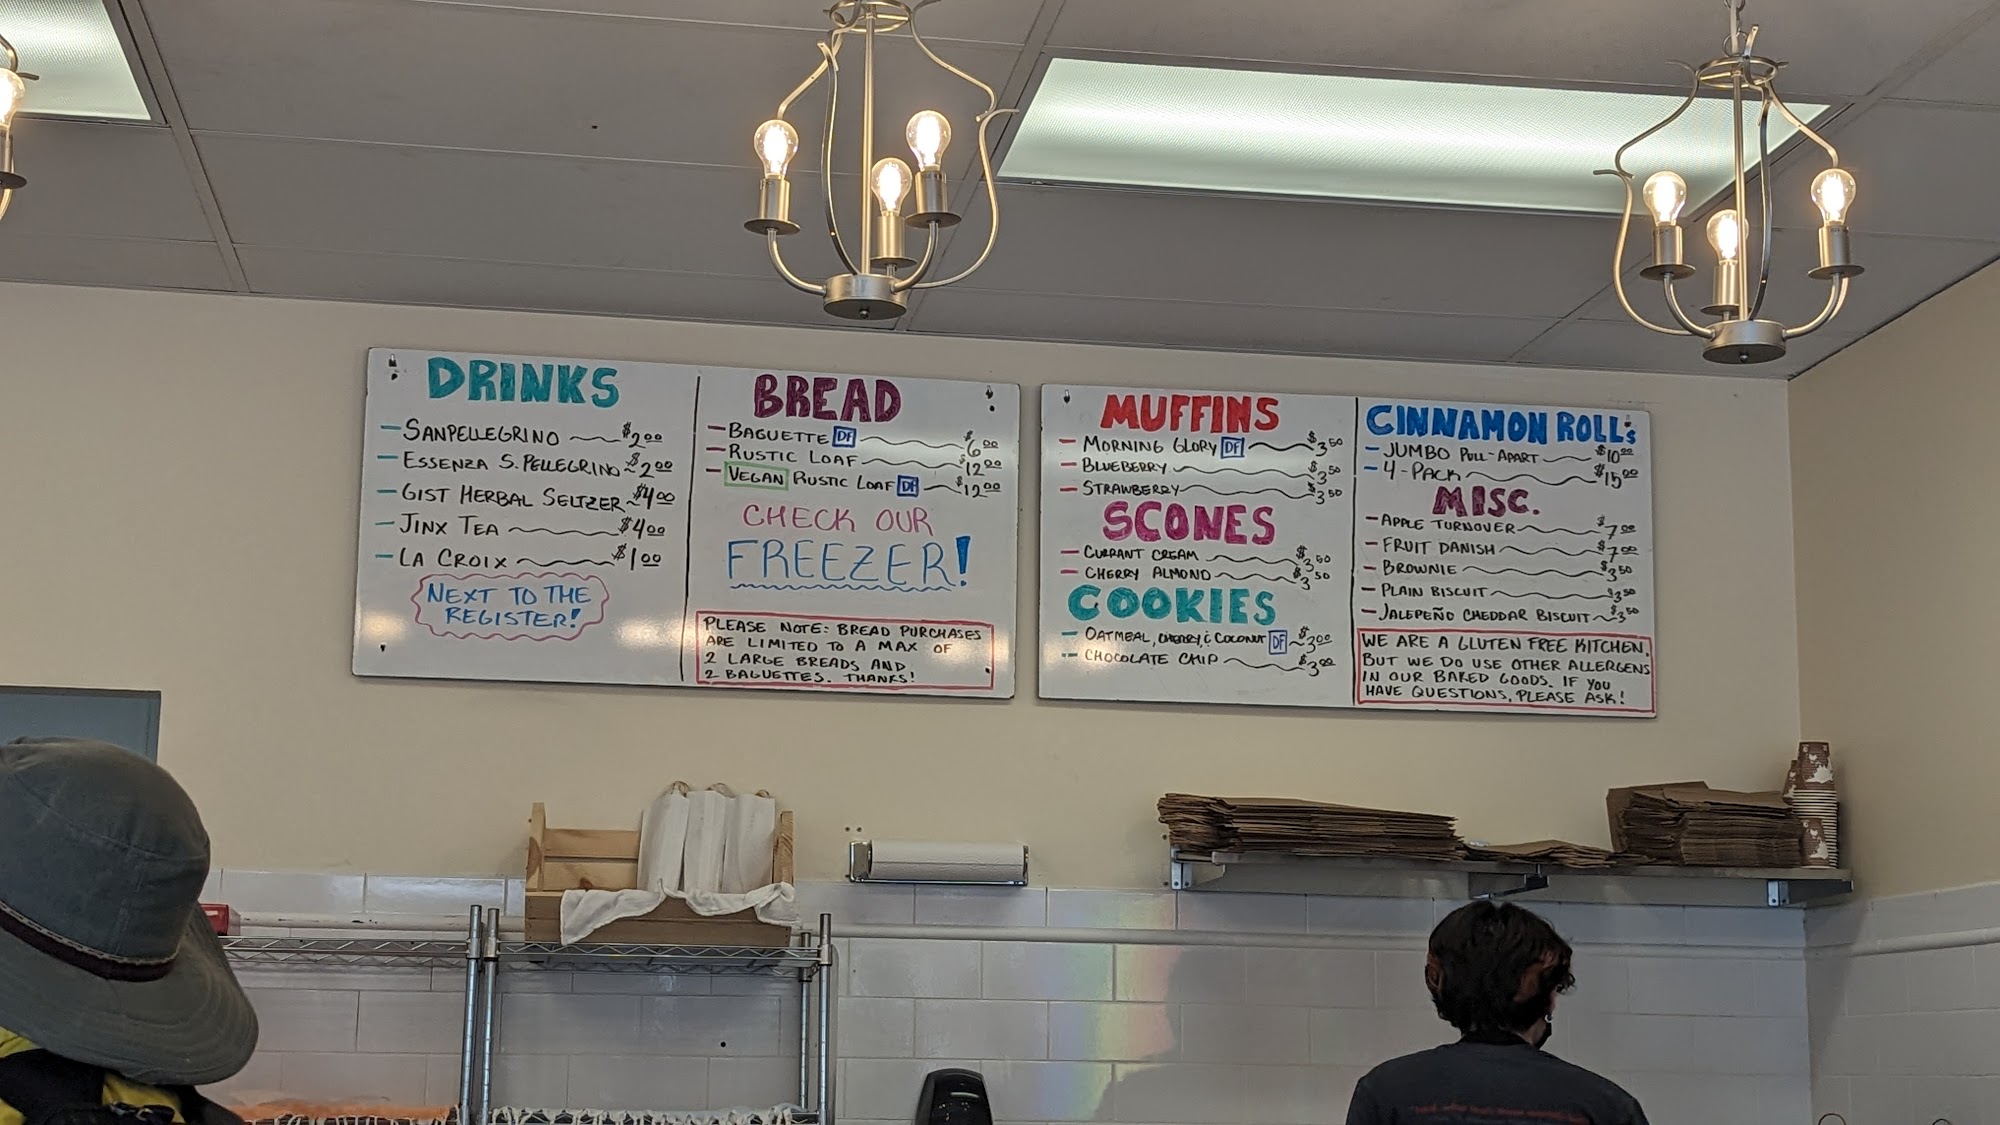 DRINKS
- SANPELLEGRINO $2.00
- ESSENZA S. PELLEGRINO $2.00
- GIST HERBAL SELTZER $4.00
- JINX TEA $4.00
- LA CROIX $1.00
NEXT TO THE
REGISTER!
BREAD
- BAGUETTE DF $6.00
- RUSTIC LOAF $12.00
- VEGAN RUSTIC LOAF DF $12.00
CHECK OUR
FREEZER!
PLEASE NOTE: BREAD PURCHASES
ARE LIMITED TO A MAX OF
2 LARGE BREADS AND
2 BAGUETTES. THANKS!
MUFFINS
- MORNING GLORY DF $3.50
- BLUEBERRY $3.50
- STRAWBERRY $3.50
SCONES
- CURRANT CREAM $3.50
- CHERRY ALMOND $3.50
COOKIES
- OATMEAL, CHERRY, & COCONUT DF $3.00
- CHOCOLATE CHIP $3.00
CINNAMON ROLLS
- JUMBO PULL-APART $10.00
- 4-PACK $15.00
MISC.
- APPLE TURNOVER $7.00
- FRUIT DANISH $7.00
- BROWNIE $3.50
- PLAIN BISCUIT $3.50
- JALEPEÑO CHEDDAR BISCUIT $3.50
WE ARE A GLUTEN FREE KITCHEN,
BUT WE DO USE OTHER ALLERGENS
IN OUR BAKED GOODS. IF YOU
HAVE QUESTIONS, PLEASE ASK!